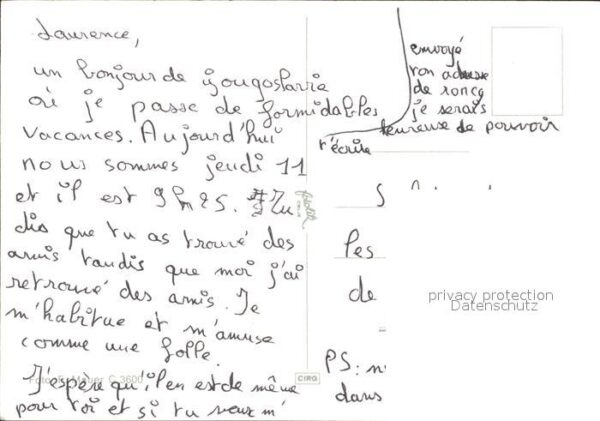 Laurence,
un bonjour de yougoslavie
où je passe de formidables
vacances. Aujourd'hui
nous sommes jeudi 11
et il est 9h25. Tu
dis que tu as trouvé des
amis tandis que moi j'ai
retrouvé des amis. Je
m'habitue et m'amuse
comme une folle.
J'espère qu'il en est de même
pour toi et si tu veux m'
envoyé
ton adresse
de roncq
je serais
heureuse de pouvoir
t'écrire
Les
de
privacy protection
Datenschutz
PS:
dans
CIRO